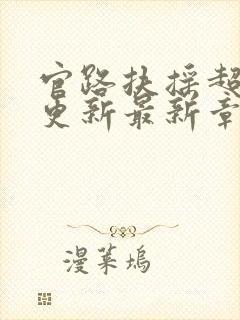 官路扶摇超
更新最新章
漫莱坞